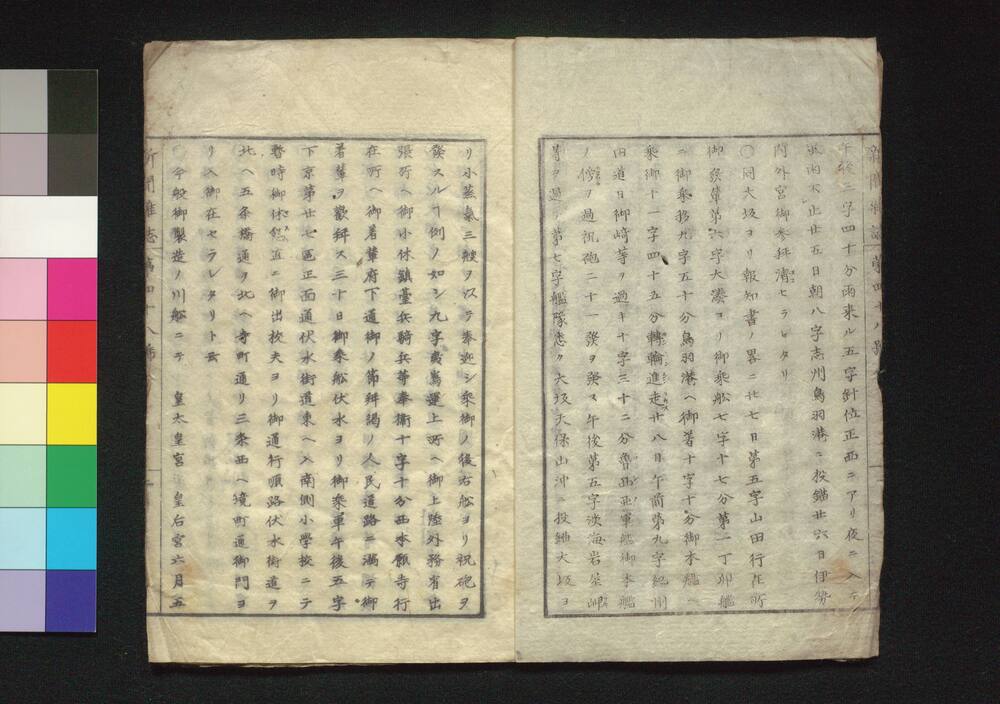 午後二字四十分雨来ル五字針位正西ニアリ夜ニ入テ
風雨不止廿五日朝八字志州鳥羽港ニ投錨廿六日伊勢
内外宮御参拝済セラレタリ
〇同大坂ヨリ報知書ノ畧ニ廿七日第五字山田行在所
御発輦第六字大湊ヨリ御乗船七字十七分第二丁卯艦
ニ御乗移九字五十分鳥羽港ヘ御着十字十分御本艦ヘ
乗御十一字四十五分轉輪進走廿八日午前第九字紀州
田道日御﨑等ヲ過キ十字三十二分魯西亜軍艦御本艦
ノ傍ヲ過祝砲二十一發ヲ發ス午後第五字淡海岩屋岬
等ヲ過第七字艦隊悉ク大坂天保山沖ニ投錨大坂ヨ
リ小蒸氣三艘ヲ以テ奉迎シ乗御ノ後右舩ヨリ祝砲ヲ
發スルヿ例ノ如シ九字川口運上所ヘ御上陸外務省出
張所ヘ御小休鎮臺兵騎兵等奉衛十字十分西本願寺行
在所ヘ御着輦府下通御ノ節拜謁ノ人民道路ニ満テ御
着輦ヲ歡拜ス三十日御乗船伏水ヨリ御乗車午後五字
下京第廿七區正面通伏水街道東ヘ入南側小學校ニテ
暫時御休憩直ニ御出校夫ヨリ御通行順路伏水街道ヲ
北ヘ五条橋通ヲ北ヘ寺町通リ三条西ヘ境町通御門ヨ
リ入御在セラレタリト云
〇今般御製造ノ川舩ニテ 皇太皇宮 皇后宮六月五
新聞雑誌 第四十八號